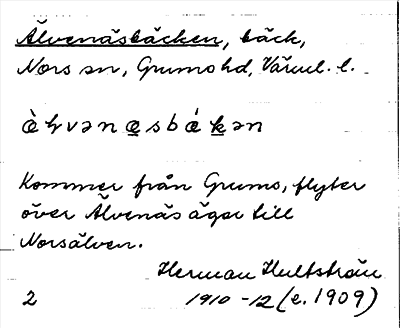 Älvenäsbäcken, bäck,
Nors sn, Grums hd, Värml. l.
Kommer från Grums, flyter
över Älvenäs ägor till
Norsälven.
Herman Hultström
1910-12 (e. 1909)
2